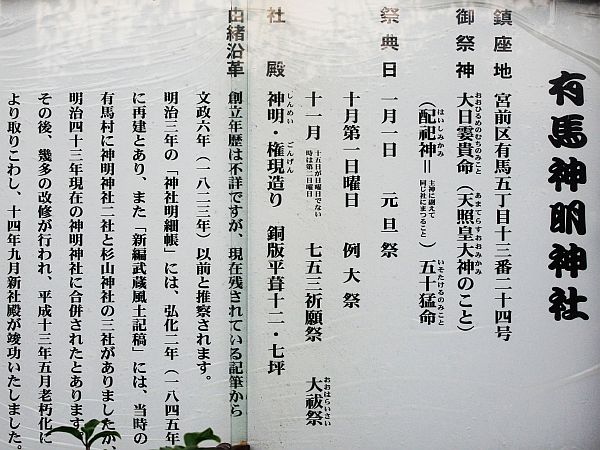 有馬神明神社
鎮座地 宮前区有馬五丁目十三番二十四号
御祭神 大日孁貴命（天照皇大神のこと）
おおひるめのむちのみこと あまてらすおおみかみ
（配祀神＝主神に副えて同じ社にまつること）五十猛命
はいしみかみ いそたけるのみこと
祭典日 一月一日 元旦祭
十月第一日曜日 例大祭
十一月 十五日が日曜日でない時は第二日曜日 七五三祈願祭 大祓祭
おおはらいさい
社殿 神明・権現造り 銅版平葺十二・七坪
しんめい ごんげん
由緒沿革 創立年歴は不詳ですが、現在残されている記筆から
文政六年（一八二三年）以前と推察されます。
明治三年の「神社明細帳」には、弘化二年（一八四五年
に再建とあり、また「新編武蔵風土記稿」には、当時の
有馬村に神明神社二社と杉山神社の三社がありましたが、
明治四十三年現在の神明神社に合併されたとあります。
その後、幾多の改修が行われ、平成十三年五月老朽化に
より取りこわし、十四年九月新社殿が竣功いたしました。